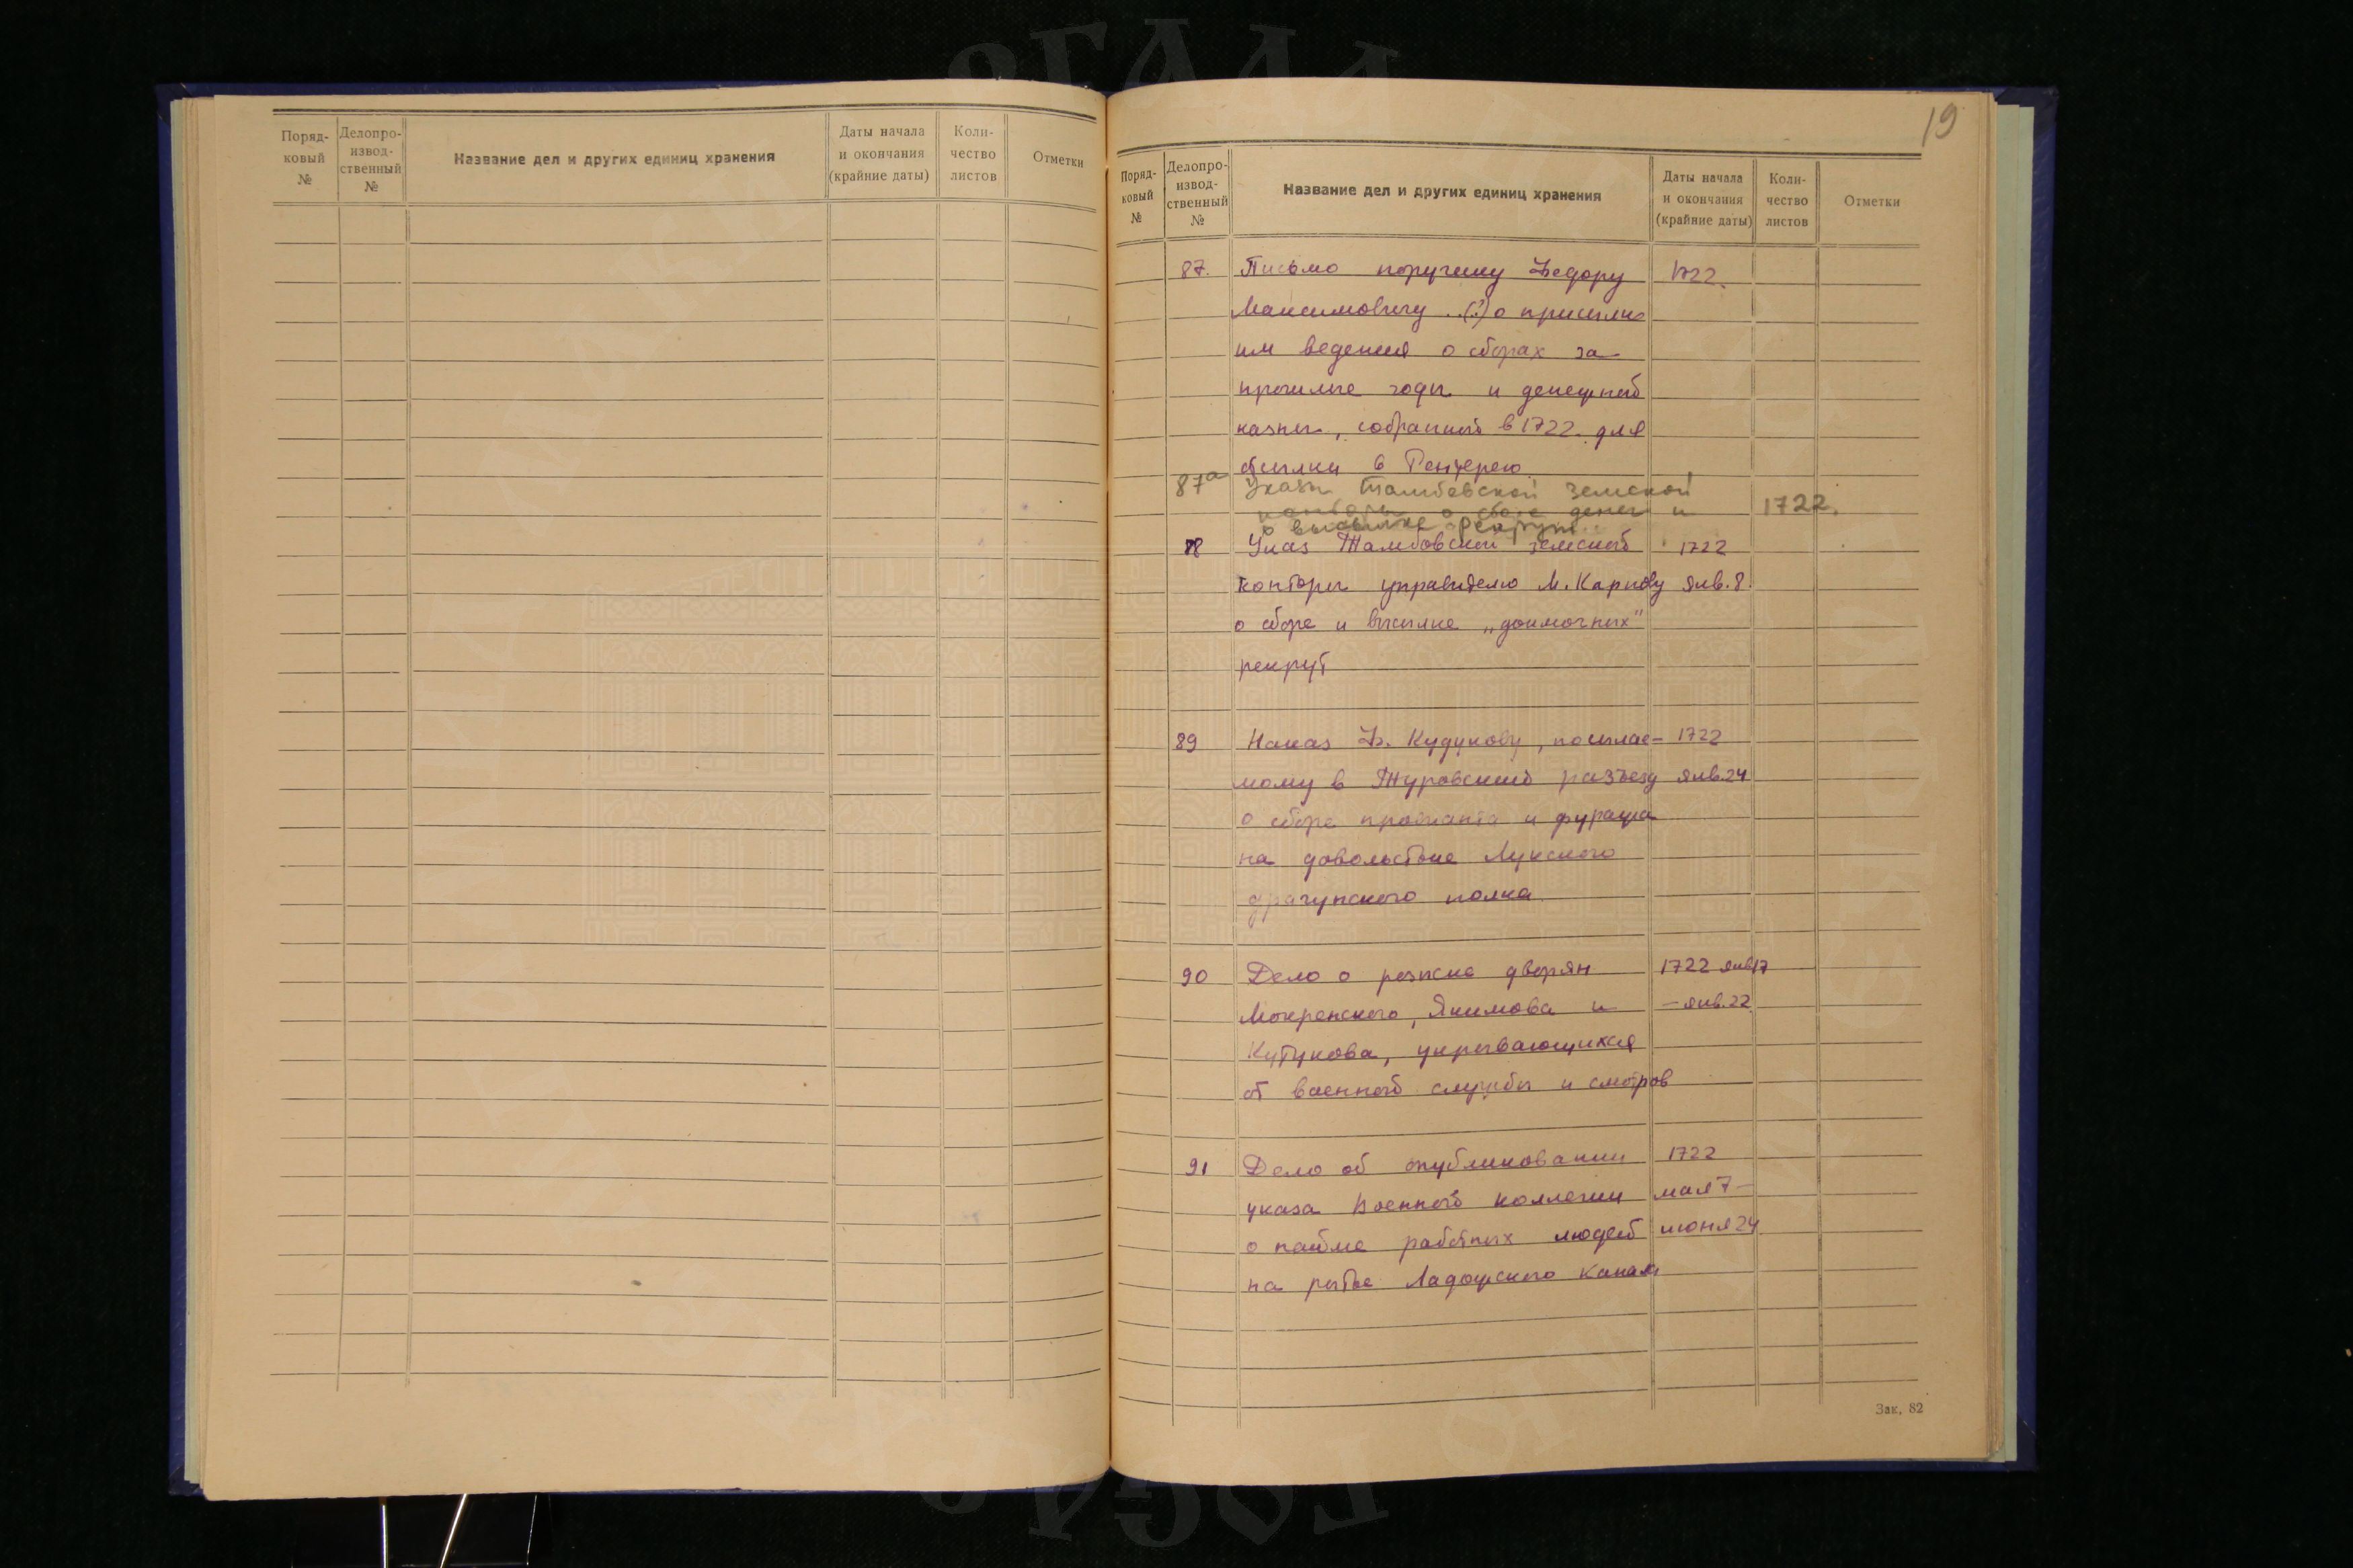 Поряд-
ковый
№
Делопро-
извод-
ственный
№
Название дел и других единиц хранения
Даты начала
и окончания
(крайние даты)
Коли-
чество
листов
Отметки
19
Поряд-
ковый
№
Делопро-
извод-
ственный
№
Название дел и других единиц хранения
Даты начала
и окончания
(крайние даты)
Коли-
чество
листов
Отметки
87. Письмо поручику Федору 1722.
Максимовичу ..(?) о присылке
им ведения о сборах за
прошлые годы и денежной
казны, собранной в 1722. для
отсылки в Рентерею
87а Указы Тамбовской земской
конторы о сборе денег и 1722.
о высылке рекрут
88 Указ Тамбовской земской 1722
конторы управителю М. Карпову янв. 8.
о сборе и высылке „доимочных"
рекрут
89 Наказ Ф. Кудукову, посылае- 1722
мому в Туровский разъезд янв. 24
о сборе провианта и фуража
на довольствие Луцкого
драгунского полка
90 Дело о розыске дворян 1722 янв 17
Мокренского, Якимова и – янв. 22
Кутукова, укрывающихся
от военной службы и смотров
91 Дело об опубликовании 1722
указа Военной коллегии мая 7 –
о найме работных людей июня 24
на рытье Ладожского канала
Зак. 82